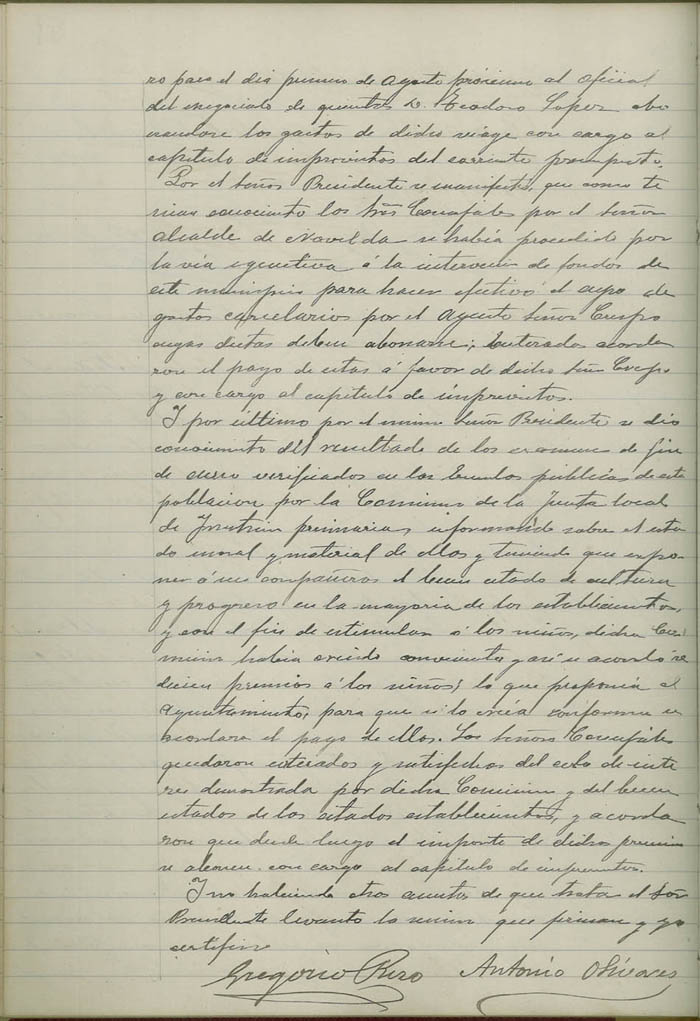 ro para el dia primero de Agosto próximo al oficial
del negociado de quintas D. Teodoro Lopez abo
nandose los gastos de dicho viage con cargo al
capitulo de imprevistos del corriente presupuesto.
Por el Señor Presidente se manifestó, que como te
nian conocimto los Srs Concejales por el Señor
Alcalde de Novelda se habia procedido por
la via egecutiva á la intervencion de fondos de
este municipio para hacer efectivo el cupo de
gastos carcelarios por el Agente Señor Crespo
cuyas dietas deben abonarse; enterados acorda
ron el pago de estas á favor de dicho Señor Crespo
y con cargo al capitulo de imprevistos.
Y por último por el mismo Señor Presidente se dió
conocimiento del resultado de los examenes de fin
de curso verificados en las Escuelas públicas de esta
poblacion por la Comision de la Junta local
de Instrucion primaria, informando sobre el esta
do moral y material de ellos y teniendo que expo
ner á sus compañeros el buen estado de cultura
y progreso en la mayoria de los establecimientos,
y con el fin de estimular á los niños, dicha Co
mision habia creido conveniente y asi se acordó se
diesen premios á los niños; lo que proponia al
Ayuntamiento, para que si lo creia conforme se
acordara el pago de ellos. Los Señores Concejales
quedaron enterados y satisfechos del celo de inte
res demostrada por dicha Comision y del buen
estado de los citados establecimientos, y acorda
ron que desde luego el importe de dichos premios
se abonen con cargo al capitulo de imprevistos.
Y no habiendo otros asuntos de que tratar el Señor
Presidente levanto la sesion que firman y yo
certifico
Gregorio Rizo Antonio Olivares